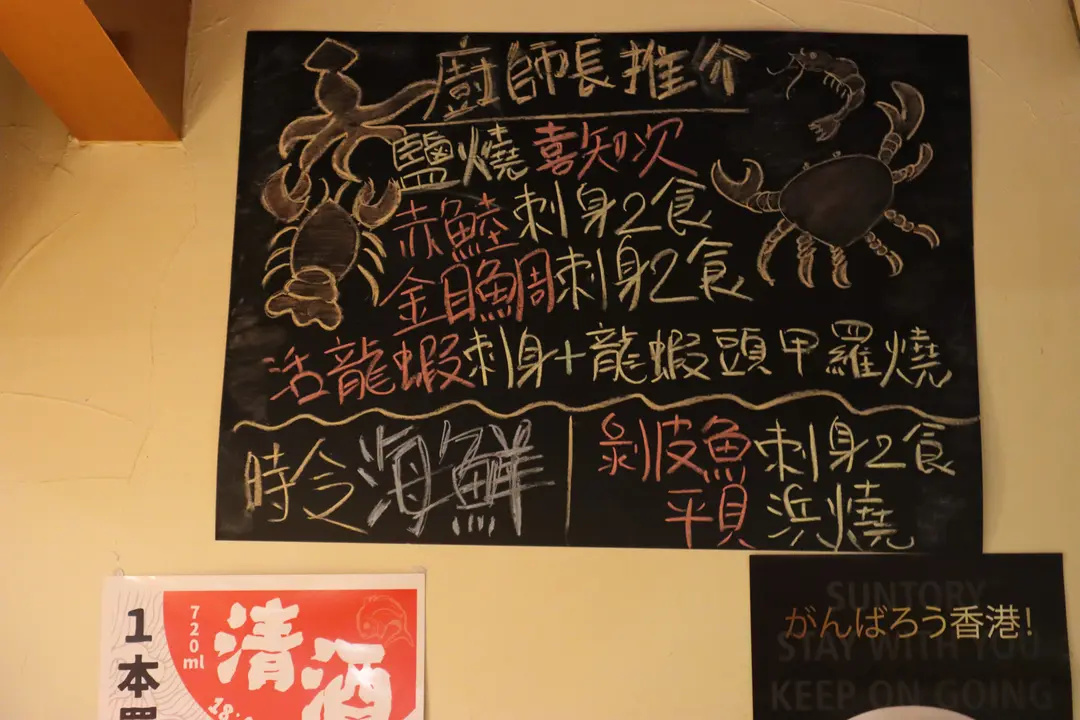 廚師長推介
鹽燒喜知次
赤鯥刺身2食
金目鯛刺身2食
活龍蝦刺身+龍蝦頭甲羅燒
時令海鮮
剝皮魚刺身2食
平貝浜燒
1本
720ml
清酒
SUNTORY
がんばろう香港!
STAY WITH YOU
KEEP ON GOING